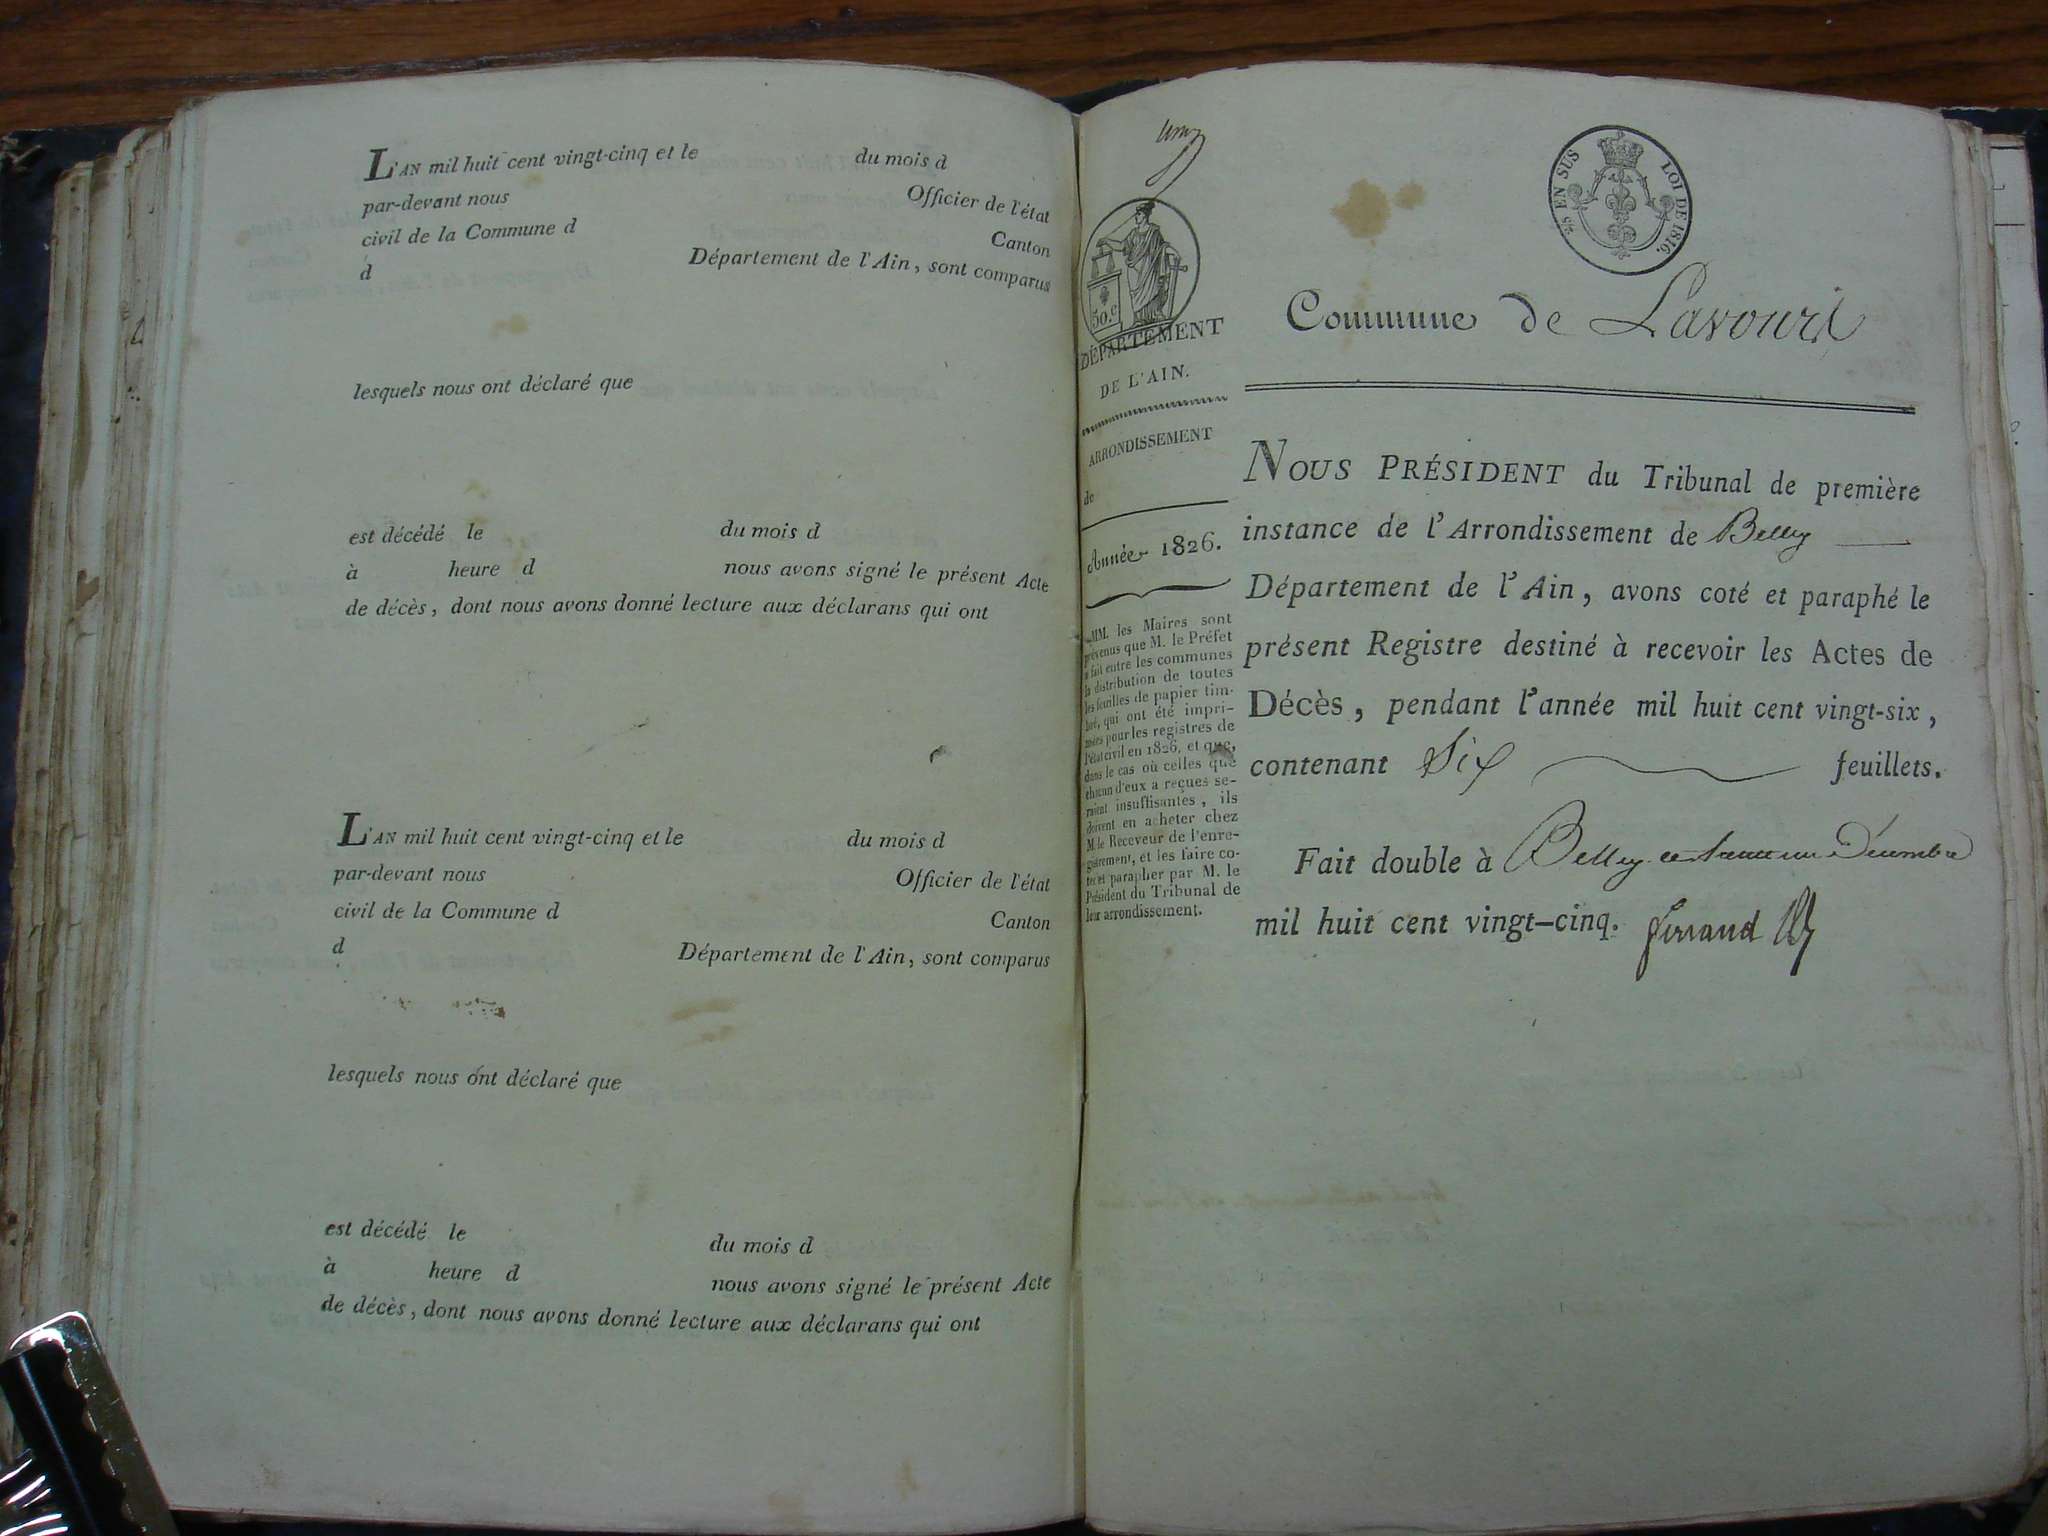 L'AN mil huit cent vingt-cinq et le du mois d
par-devant nous Officier de l'état
civil de la Commune d Canton
d Département de l'Ain, sont comparus
lesquels nous ont déclaré que
est décédé le du mois d
à heure d nous avons signé le présent Acte
de décès, dont nous avons donné lecture aux déclarans qui ont
L'AN mil huit cent vingt-cinq et le du mois d
par-devant nous Officier de l'état
civil de la Commune d Canton
d Département de l'Ain, sont comparus
lesquels nous ont déclaré que
est décédé le du mois d
à heure d nous avons signé le présent Acte
de décès, dont nous avons donné lecture aux déclarans qui ont
50.c
DÉPARTEMENT
DE L'AIN.
ARRONDISSEMENT
de
Année 1826.
MM. les Maires sont
prévenus que M. le Préfet
a fait entre les communes
la distribution de toutes
les feuilles de papier tim-
bré, qui ont été impri-
mées pour les registres de
l'état civil en 1826, et que,
dans le cas où celles que
chacun d'eux a reçues se-
raient insuffisantes, ils
doivent en acheter chez
M. le Receveur de l'enre-
gistrement, et les faire co-
ter et parapher par M. le
Président du Tribunal de
leur arrondissement.
EN SUS LOI DE 1816.
Commune de Lavours
NOUS PRÉSIDENT du Tribunal de première
instance de l'Arrondissement de Belley
Département de l'Ain, avons coté et paraphé le
présent Registre destiné à recevoir les Actes de
Décès, pendant l'année mil huit cent vingt-six,
contenant Six feuillets.
Fait double à Belley ce trente un Décembre
mil huit cent vingt-cinq. ferrand